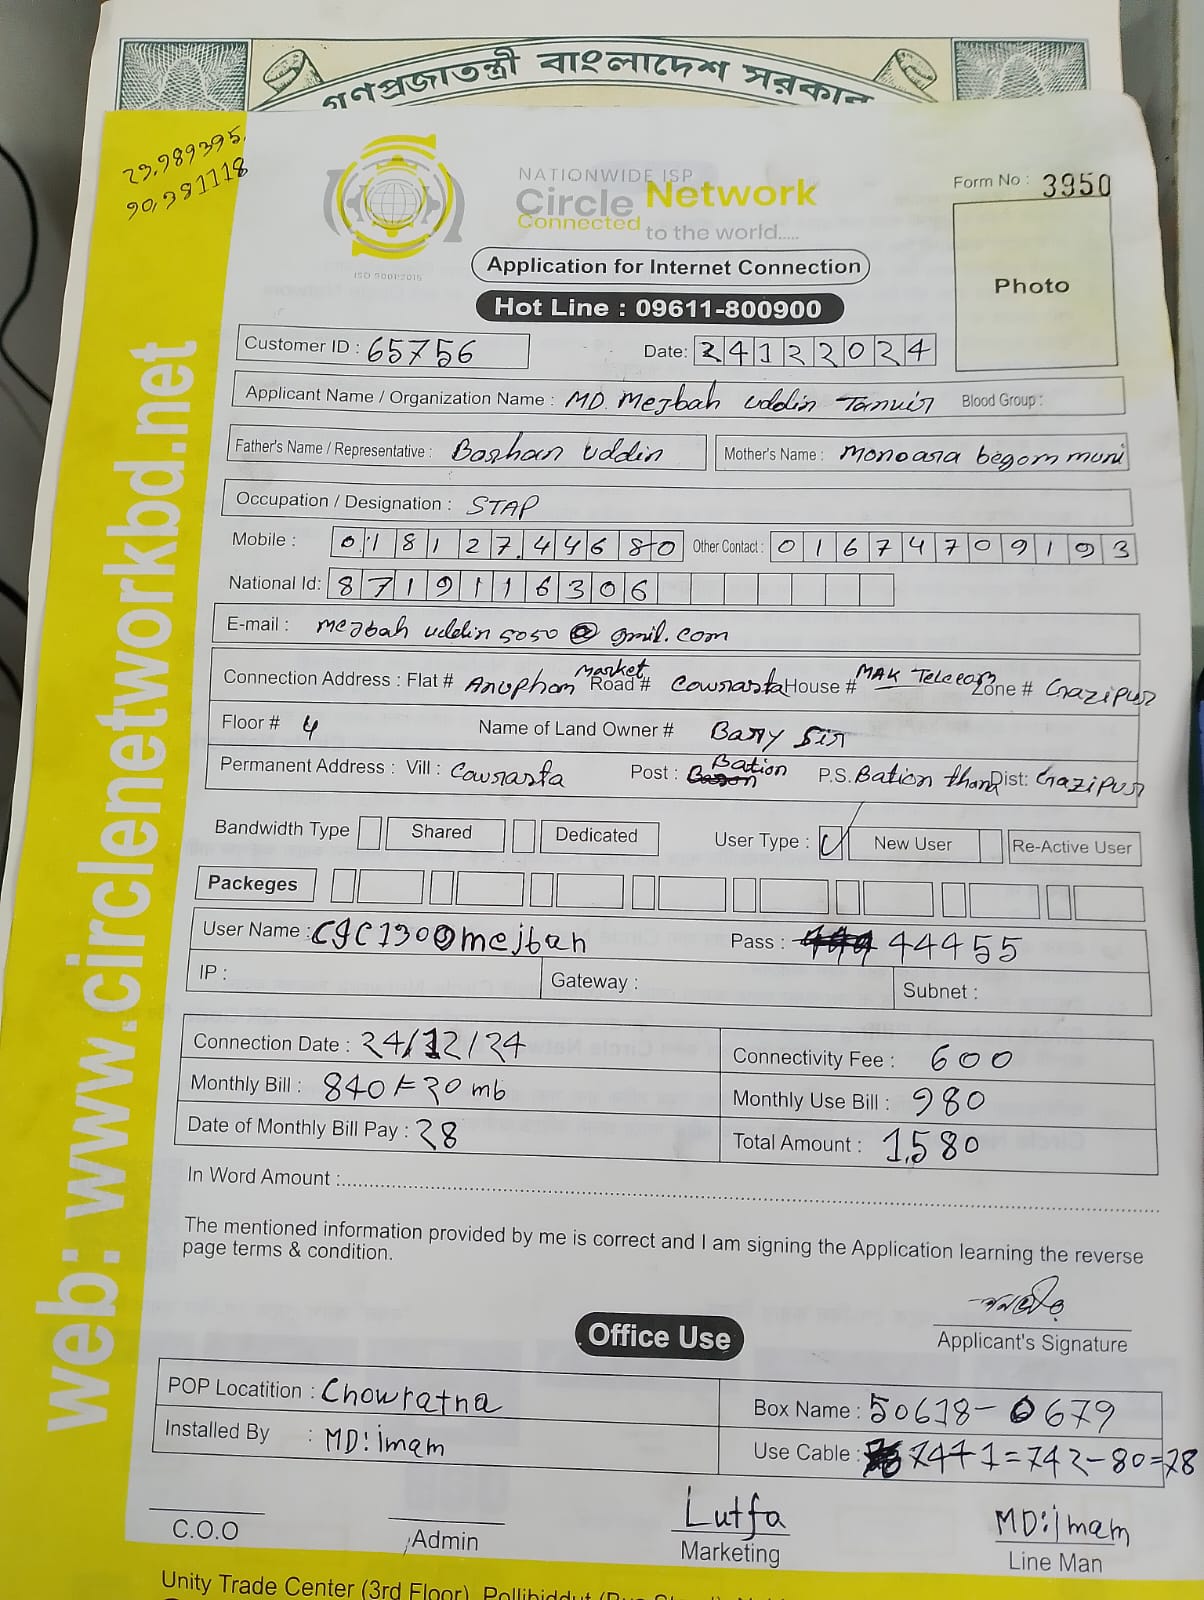 গণপ্রজাতন্ত্রী বাংলাদেশ সরকার
23.989395,
90.381118
NATIONWIDE ISP
Circle Network
Connected to the world.....
ISO 9001:2015
Form No : 3950
Photo
Application for Internet Connection
Hot Line : 09611-800900
Customer ID : 65756 Date: 24122024
Applicant Name / Organization Name : MD. Mejbah Uddin Tanvir Blood Group :
Father's Name / Representative : Borhan Uddin Mother's Name : Monoara begom muni
Occupation / Designation : STAP
Mobile : 01812744680 Other Contact : 01674709193
National Id: 8719116306
E-mail : mejbah uddin 5050 @ gmil.com
Connection Address : Flat # Anupham Market Road # Cowrasta House # MAK Telecom Zone # Gazipur
Floor # 4 Name of Land Owner # Bary Sir
Permanent Address : Vill : Cowrasta Post : Bation P.S. Bation thana Dist: Gazipur
Bandwidth Type Shared Dedicated User Type : New User Re-Active User
Packeges
User Name : CGC1300mejbah Pass : 44455
IP : Gateway : Subnet :
Connection Date : 24/12/24 Connectivity Fee : 600
Monthly Bill : 840/= 30 mb Monthly Use Bill : 980
Date of Monthly Bill Pay : 28 Total Amount : 1,580
In Word Amount :
The mentioned information provided by me is correct and I am signing the Application learning the reverse
page terms & condition.
Applicant's Signature
Office Use
POP Locatition : Chowratna Box Name : 50618-0679
Installed By : MD: imam Use Cable : 7471=742-80=78
C.O.O
Admin
Lutfa
Marketing
MD: imam
Line Man
Unity Trade Center (3rd Floor), Pollibiddut
web: www.circlenetworkbd.net